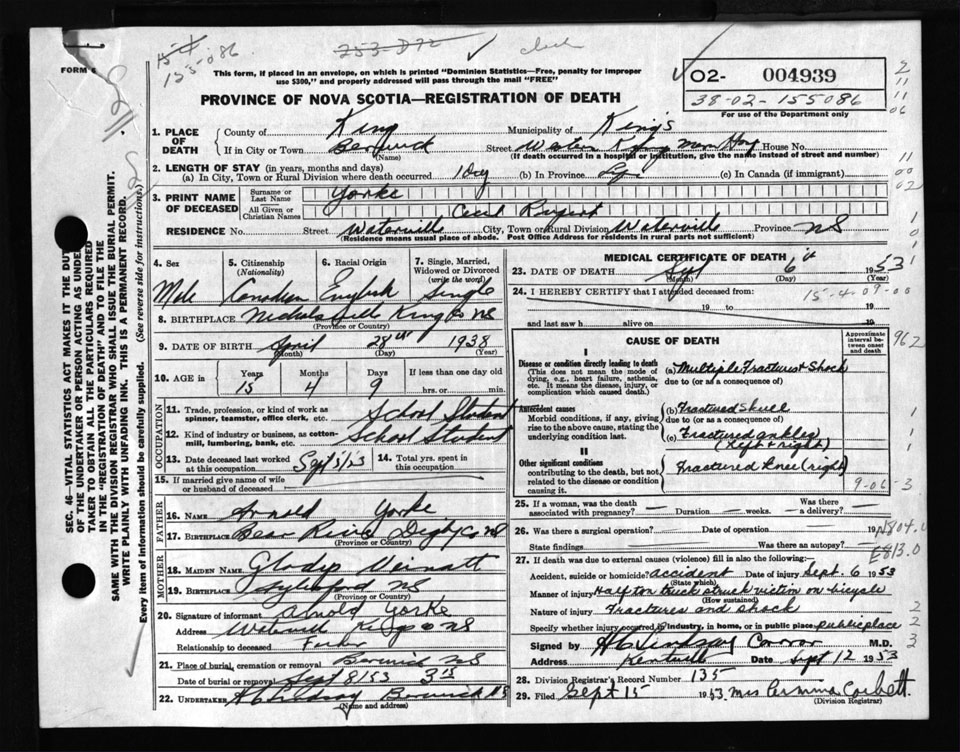 FORM 6
153-086
253-D72
check
This form, if placed in an envelope, on which is printed "Dominion Statistics—Free, penalty for improper
use $300," and properly addressed will pass through the mail "FREE"
PROVINCE OF NOVA SCOTIA—REGISTRATION OF DEATH
02- 004939
38-02-155086
For use of the Department only
1. PLACE OF DEATH
County of King Municipality of King's
If in City or Town Berwick Street Western Kings Mem Hosp House No.
(Name) (If death occurred in a hospital or institution, give the name instead of street and number)
2. LENGTH OF STAY (in years, months and days)
(a) In City, Town or Rural Division where death occurred 1 Day (b) In Province Life (c) In Canada (if immigrant)
3. PRINT NAME OF DECEASED
Surname or Last Name Yorke
All Given or Christian Names Cecil Rupert
RESIDENCE No. Street Waterville City, Town or Rural Division Waterville Province NS
(Residence means usual place of abode. Post Office Address for residents in rural parts not sufficient)
4. Sex 5. Citizenship (Nationality) 6. Racial Origin 7. Single, Married, Widowed or Divorced (Write the word)
Male Canadian English Single
8. BIRTHPLACE Nicholsville Kings Co NS
(Province or Country)
9. DATE OF BIRTH April 28th 1938
(Month) (Day) (Year)
10. AGE in Years Months Days If less than one day old
15 4 9 hrs. or min.
OCCUPATION
11. Trade, profession, or kind of work as spinner, teamster, office clerk, etc. School Student
12. Kind of industry or business, as cotton-mill, lumbering, bank, etc. School Student
13. Date deceased last worked at this occupation Sept 5/53 14. Total yrs. spent in this occupation
15. If married give name of wife or husband of deceased
FATHER
16. NAME Arnold Yorke
17. BIRTHPLACE Bear River Digby Co NS
(Province or Country)
MOTHER
18. MAIDEN NAME Gladys
19. BIRTHPLACE NS
(Province or Country)
20. Signature of informant Arnold Yorke
Address Kings Co NS
Relationship to deceased Father
21. Place of burial, cremation or removal Berwick NS
Date of burial or removal Sept 8/53
22. UNDERTAKER Berwick NS
(Name and address)
MEDICAL CERTIFICATE OF DEATH
23. DATE OF DEATH Sept 6th 1953
(Month) (Day) (Year)
24. I HEREBY CERTIFY that I attended deceased from:
15-4-09-00
19 to 19
and last saw h alive on 19
CAUSE OF DEATH
Approximate interval between onset and death
I
Disease or condition directly leading to death
(This does not mean the mode of dying, e.g., heart failure, asthenia, etc. It means the disease, injury, or complication which caused death.)
(a) Multiple Fractures & Shock
due to (or as a consequence of)
Antecedent causes
Morbid conditions, if any, giving rise to the above cause, stating the underlying condition last.
(b) Fractured Skull
due to (or as a consequence of)
(c) Fractured ankles
(Left & right)
II
Other significant conditions
contributing to the death, but not related to the disease or condition causing it.
Fractured Knee (right)
9-06-3
25. If a woman, was the death associated with pregnancy? Duration weeks. Was there a delivery?
26. Was there a surgical operation? Date of operation 19
State findings Was there an autopsy?
N804.0
E813.0
27. If death was due to external causes (violence) fill in also the following:
Accident, suicide or homicide? accident Date of injury Sept. 6 1953
(State which)
Manner of injury Half ton truck struck victim on bicycle
(How sustained)
Nature of injury Fractures and shock
Specify whether injury occurred in industry, in home, or in public place public place
Signed by M.D.
Address Kentville Date Sept 12 1953
28. Division Registrar's Record Number 135
29. Filed Sept 15 1953 Mrs Corbett
(Division Registrar)
SEC. 46—VITAL STATISTICS ACT MAKES IT THE DUTY
OF THE UNDERTAKER OR PERSON ACTING AS UNDERTAKER
TO OBTAIN ALL THE PARTICULARS REQUIRED
IN THE "REGISTRATION OF DEATH" AND TO FILE THE
SAME WITH THE DIVISION REGISTRAR WHO SHALL ISSUE THE BURIAL PERMIT.
WRITE PLAINLY WITH UNFADING INK. THIS IS A PERMANENT RECORD.
Every item of information should be carefully supplied. (See reverse side for instructions)